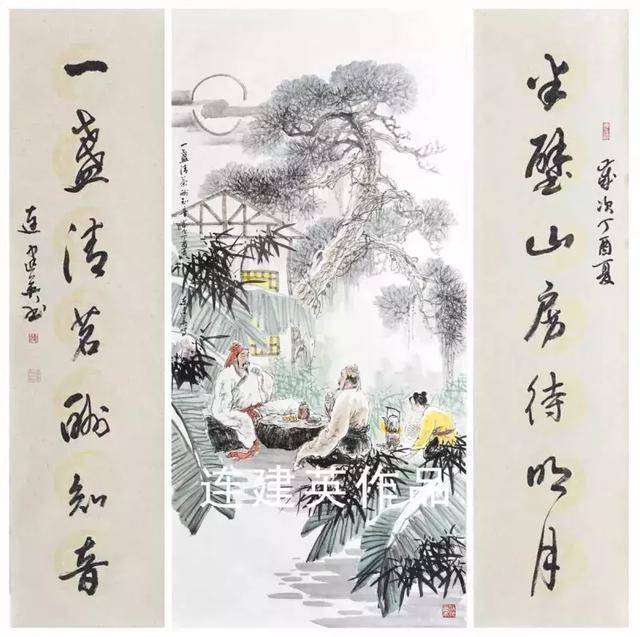 半壁山房待明月
岁次丁酉夏
一盏清茗酬知音
连建英书
一盏清茶酬知音
连建英作品